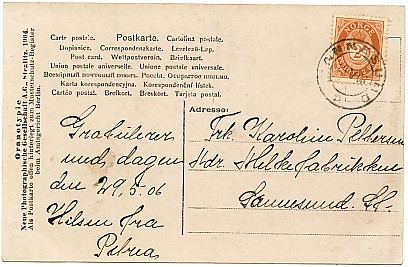 Carte postale. Postkarte. Cartolina postale.
Dopisnice. Correspondenzkarte. Levelező-Lap.
Post card. Weltpostverein. Briefkaart.
Union postale universelle. Unione postale universale.
Всемірный почтовый союзъ. Россія. Открытое письмо.
Karta korespondencyjna. Korespondenční lístek.
Cartão postal. Brefkort. Brevkort. Tarjeta postal.
Oranotypie
Neue Photographische Gesellschaft A.G., Steglitz, 1904.
Als Postkarte offen hinterlegt zum Musterschutz-Register
beim Amtsgericht Berlin.
NORGE
Adresse:
Gratulerer
med dagen
den 29,5-06
Hilsen fra
Petrea
Frk. Karoline
Adr. Melkefabrikken
Sannesund St.